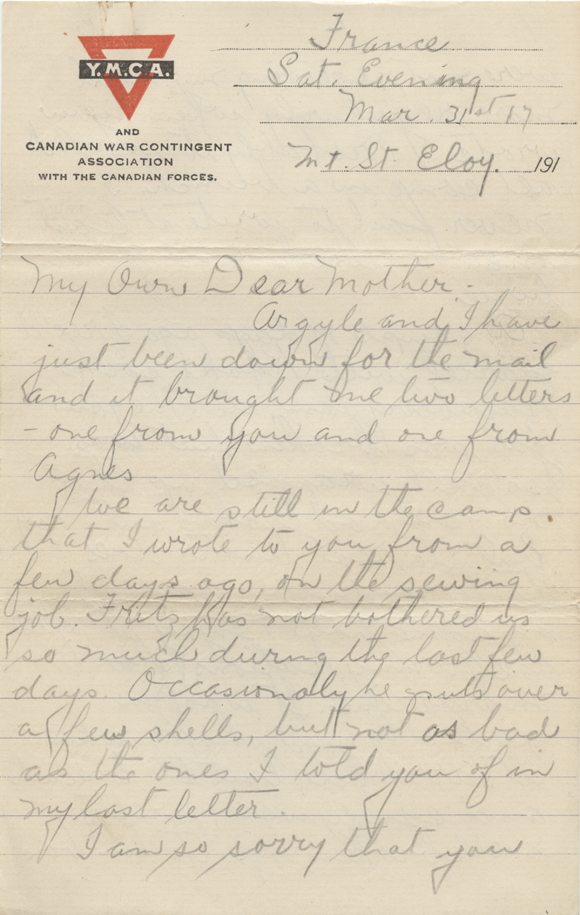 Y.M.C.A.
AND
CANADIAN WAR CONTINGENT
ASSOCIATION
WITH THE CANADIAN FORCES.
France
Sat. Evening
Mar. 31st 17
Mt. St. Eloy. 191
My Own Dear Mother.
Argyle and I have
just been down for the mail
and it brought me two letters
- one from you and one from
Agnes
We are still in the camp
that I wrote to you from a
few days ago, on the sewing
job. Fritz has not bothered us
so much during the last few
days. Occasionaly he puts over
a few shells, but not as bad
as the ones I told you of in
my last letter.
I am so sorry that you